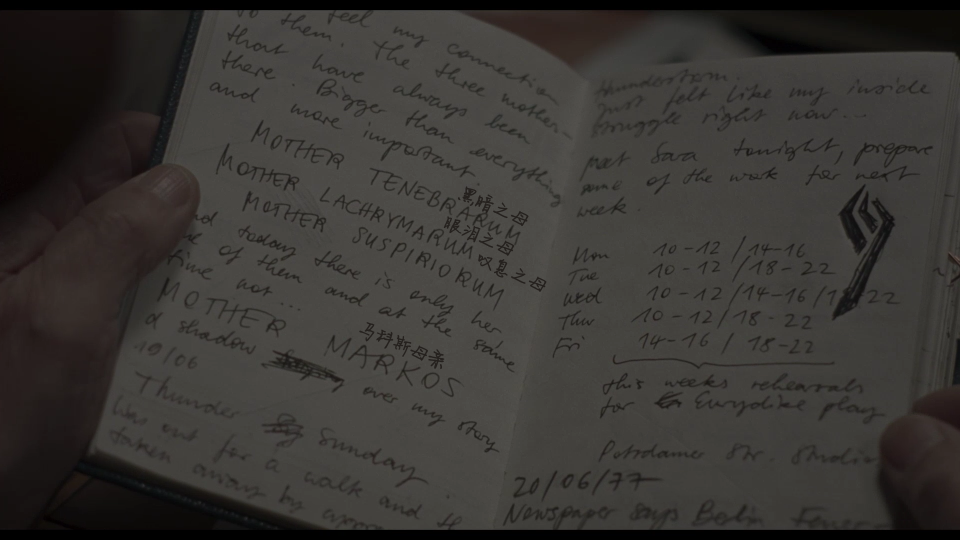 to feel my connection
to them. The three mother-
that have always been
there. Bigger than everything
and more important.
MOTHER TENEBRARUM
黑暗之母
MOTHER LACHRYMARUM
眼泪之母
MOTHER SUSPIRIORUM
叹息之母
And today there is only her
one of them and at the same
time not...
MOTHER MARKOS
马科斯母亲
shadow over my story
19/06
Thunder Sunday.
Was out for a walk and
taken away by
thunderstorm.
Just felt like my inside
struggle right now...
Meet Sara tonight, prepare
some of the work for next
week.
Mon 10-12 / 14-16
Tue 10-12 / 18-22
Wed 10-12 / 14-16 / 22
Thur 10-12 / 18-22
Fri 14-16 / 18-22
this weeks rehearsals
for Eurydike play
Potsdamer Str. Studio
20/06/77
Newspaper says Berlin